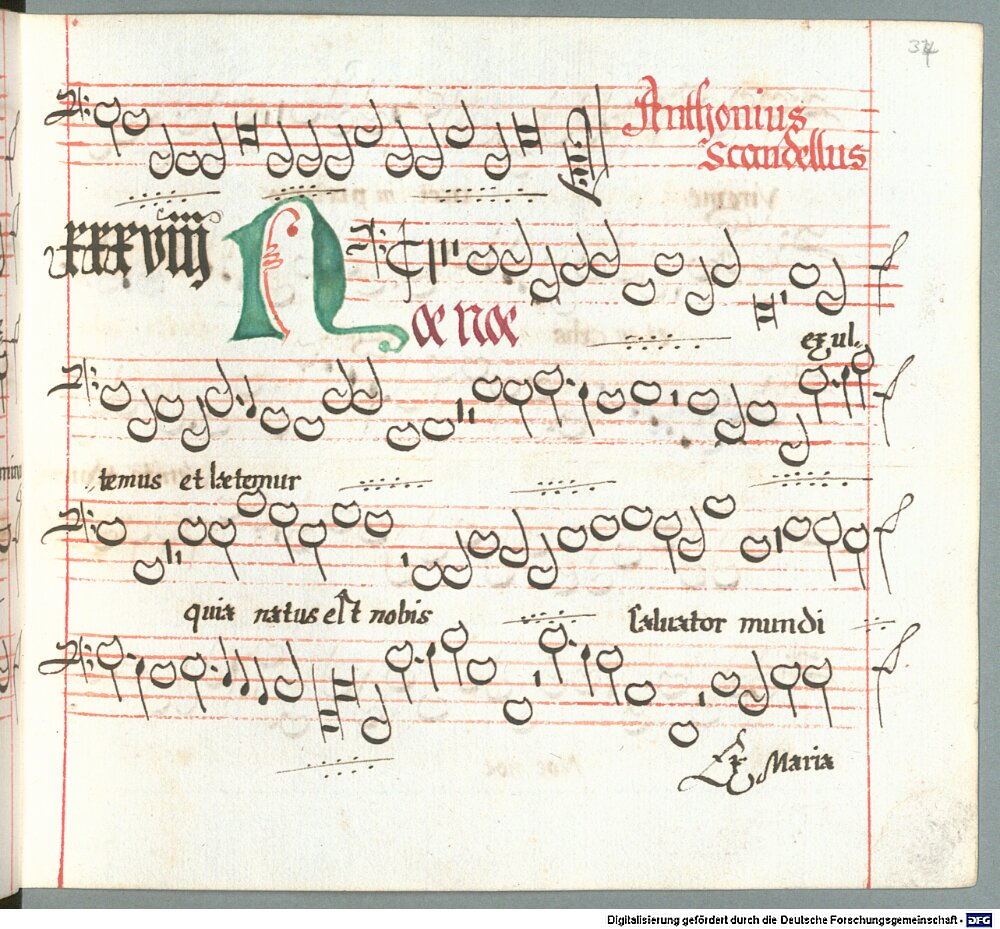 34
Anthonius
Scandellus
xxxviiij
Noæ noæ
exul-
temus et lætemur
quia natus est nobis
saluator mundi
Ex Maria
Digitalisierung gefördert durch die Deutsche Forschungsgemeinschaft - DFG